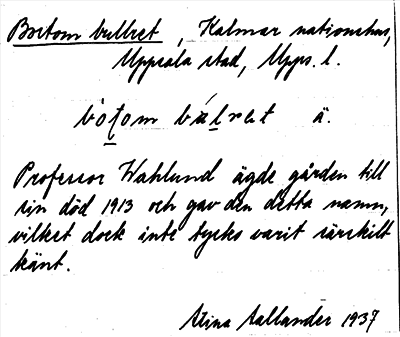 Bortom bullret, Kalmar nationshus,
Uppsala stad, Upps. l.
bo̍t̲om bu̍l̲ret ä.
Professor Wahlund ägde gården till
sin död 1913 och gav den detta namn,
vilket dock inte tycks varit särskilt
känt.
Stina Sallander 1937